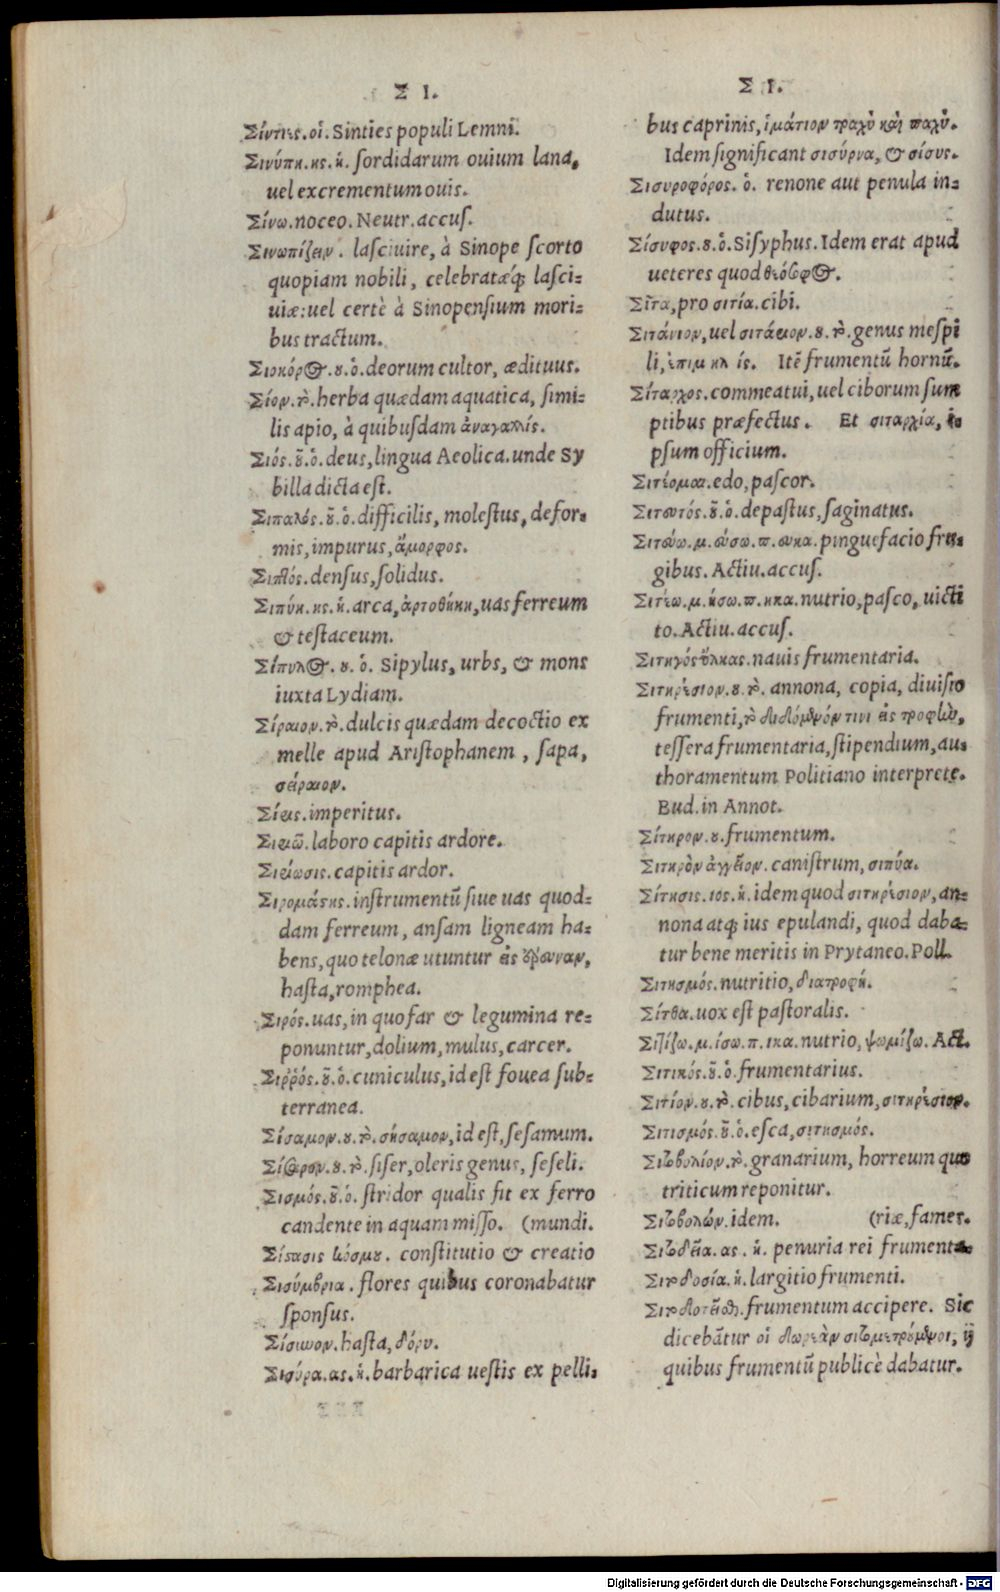 Σ Ι.
Σίντιες. οἱ. Sinties populi Lemni.
Σινύπη. ης. ἡ. ſordidarum ouium lana,
uel excrementum ouis.
Σίνω. noceo. Neutr. accuſ.
Σινωπίζειν. laſciuire, à Sinope ſcorto
quopiam nobili, celebratæq́ꝫ laſci-
uiæ: uel certè à Sinopenſium mori-
bus tractum.
Σιοκόρος. ȣ. ὁ. deorum cultor, ædituus.
Σίον. τὸ. herba quædam aquatica, ſimi-
lis apio, à quibuſdam ἀναγαλλίς.
Σιός. ȣ͂. ὁ. deus, lingua Aeolica. unde Sy
billa dicta eſt.
Σιπαλός. ȣ͂. ὁ. difficilis, moleſtus, defor-
mis, impurus, ἄμορφος.
Σιπτός. denſus, ſolidus.
Σιπύη. ης. ἡ. arca, ἀρτοθήκη, uas ferreum
& teſtaceum.
Σίπυλος. ȣ. ὁ. Sipylus, urbs, & mons
iuxta Lydiam.
Σίραιον. τὸ. dulcis quædam decoctio ex
melle apud Ariſtophanem, ſapa,
σείραιον.
imperitus.
laboro capitis ardore.
Σιρίωσις. capitis ardor.
Σιρομάστης. inſtrumentũ ſiue uas quod-
dam ferreum, anſam ligneam ha-
bens, quo telonæ utuntur εἰς ἔρευναν,
haſta, romphea.
Σιρός. uas, in quo far & legumina re-
ponuntur, dolium, mulus, carcer.
Σιῤῥός. ȣ͂. ὁ. cuniculus, id eſt fouea ſub-
terranea.
Σίσαμον. ȣ. τὸ. σήσαμον, id eſt, ſeſamum.
Σίσαρον. ȣ. τὸ. ſiſer, oleris genus, ſeſeli.
Σισμός. ȣ͂. ὁ. ſtridor qualis fit ex ferro
candente in aquam miſſo. (mundi.
Σίστασις κόσμȣ. conſtitutio & creatio
Σισύμβρια. flores quibus coronabatur
ſponſus.
haſta, δόρυ.
Σισύρα. ας. ἡ. barbarica ueſtis ex pelli-
Σ Ι.
bus caprinis, ἱμάτιον τραχὺ καὶ παχύ.
Idem ſignificant σισύρνα, & σίσυς.
Σισυροφόρος. ὁ. renone aut penula in-
dutus.
Σίσυφος. ȣ. ὁ. Siſyphus. Idem erat apud
ueteres quod θεόσοφος.
Σῖτα, pro σιτία. cibi.
Σιτάνιον, uel ȣ. τὸ. genus meſpi
li, Itẽ frumentũ hornũ.
Σίταρχος. commeatui, uel ciborum ſum
ptibus præfectus. Et σιταρχία, i-
pſum officium.
Σιτέομαι. edo, paſcor.
Σιτευτός. ȣ͂. ὁ. depaſtus, ſaginatus.
Σιτεύω. μ. εύσω. π. ευκα. pinguefacio fru-
gibus. Actiu. accuſ.
Σιτέω. μ. ήσω. π. ηκα. nutrio, paſco, uicti
to. Actiu. accuſ.
Σιτηγὸς ὅλκας. nauis frumentaria.
Σιτηρέσιον. ȣ. τὸ. annona, copia, diuiſio
frumenti, τὸ διδόμενόν τινι εἰς τροφὴν,
teſſera frumentaria, ſtipendium, au-
thoramentum Politiano interprete.
Bud. in Annot.
Σίτηρον. ȣ. frumentum.
Σιτηρὸν ἀγγεῖον. caniſtrum, σιπύα.
Σίτησις. ιος. ἡ. idem quod σιτηρέσιον, an-
nona atqꝫ ius epulandi, quod daba-
tur bene meritis in Prytaneo. Poll.
Σιτησμός. nutritio, διατροφή.
Σίτθα. uox eſt paſtoralis.
Σιτίζω. μ. ίσω. π. ικα. nutrio, ψωμίζω. Act.
Σιτικός. ȣ͂. ὁ. frumentarius.
Σιτίον. ȣ. τὸ. cibus, cibarium, σιτηρέσιον.
Σιτισμός. ȣ͂. ὁ. eſca, σιτησμός.
Σιτοβολίον. τὸ. granarium, horreum quo
triticum reponitur.
Σιτοβολών. idem. (riæ, fames.
Σιτοδεία. ας. ἡ. penuria rei frumenta-
Σιτοδοσία. ἡ. largitio frumenti.
Σιτοδοτεῖσθαι. frumentum accipere. Sic
dicebãtur οἱ δωρεὰν σιτομετρούμενοι, ij
quibus frumentũ publicè dabatur.
Digitalisierung gefördert durch die Deutsche Forschungsgemeinschaft - DFG